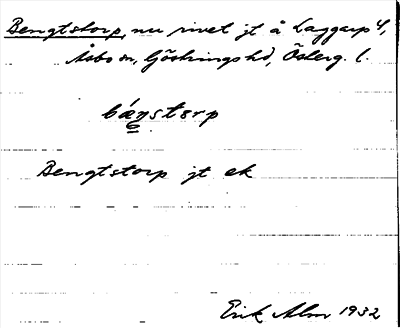 Bengtstorp, nu rivet jt å Laggarp 4,
Åsbo sn, Göstrings hd, Österg. l.
bæŋstɛrp
Bengtstorp jt ek
Erik Alm 1932